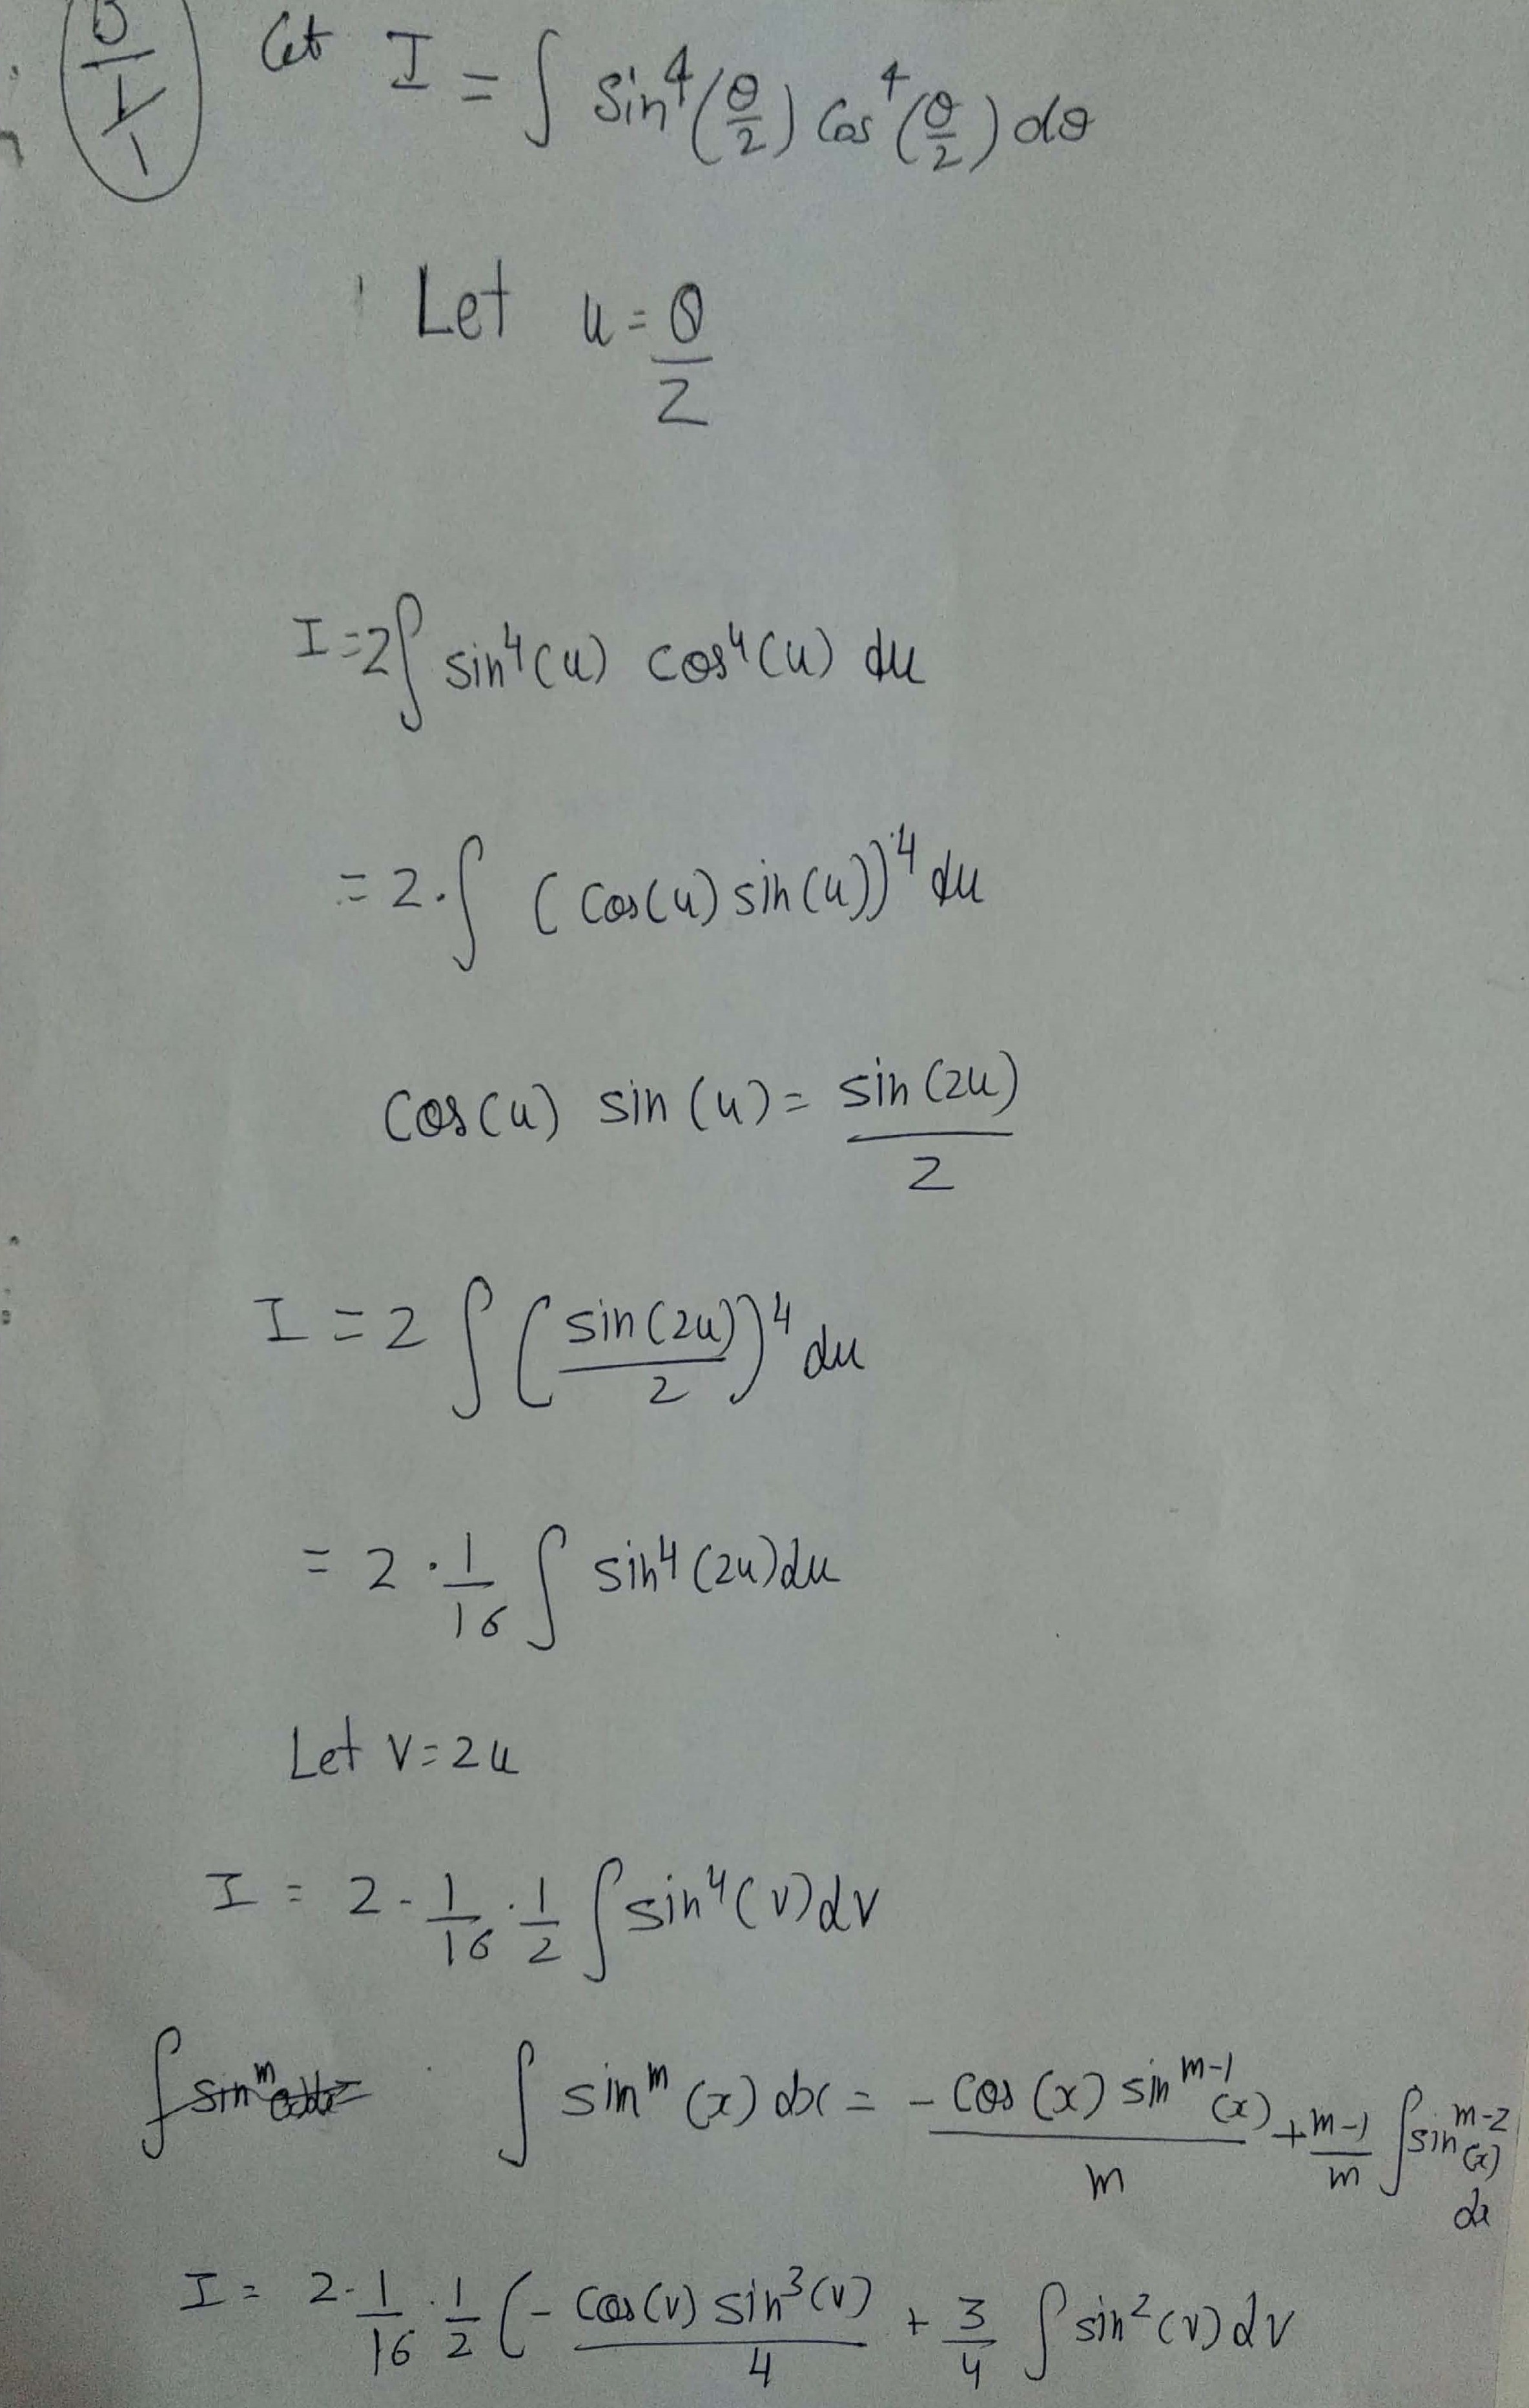 Let I = ∫ sin⁴(θ/2) cos⁴(θ/2) dθ
Let u = θ/2
I = 2∫ sin⁴(u) cos⁴(u) du
= 2·∫ (cos(u) sin(u))⁴ du
cos(u) sin(u) = sin(2u)/2
I = 2 ∫ (sin(2u)/2)⁴ du
= 2·1/16 ∫ sin⁴(2u) du
Let v = 2u
I = 2·1/16·1/2 ∫ sin⁴(v) dv
∫ sinᵐ(x) dx = -cos(x) sinᵐ⁻¹(x)/m + m-1/m ∫ sinᵐ⁻²(x) dx
I = 2·1/16·1/2 (-cos(v) sin³(v)/4 + 3/4 ∫ sin²(v) dv